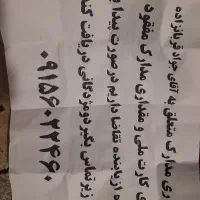 ری مدارک متعلق به آقای جواد قربانزاده
ی کارت ملی و مقداری مدارک مفقود
ه از یابنده تقاضا داریم در صورت پیدا
زیر تماس بگیرد و مژدگانی دریافت کند
۰۹۱۵۶۰۲۲۴۶۰